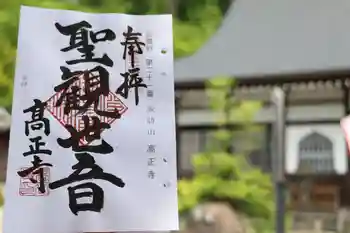 奉拝
第二十二番
高正寺
聖観世音
高正寺
高正寺